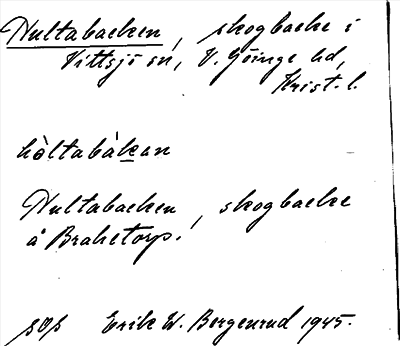 Hultabacken, skogbacke i
Vittsjö sn, V. Göinge hd,
Krist. l.
hòltabàkan
Hultabacken, skogbacke
å Brahetorp.
Erik W. Bergenrud 1945.